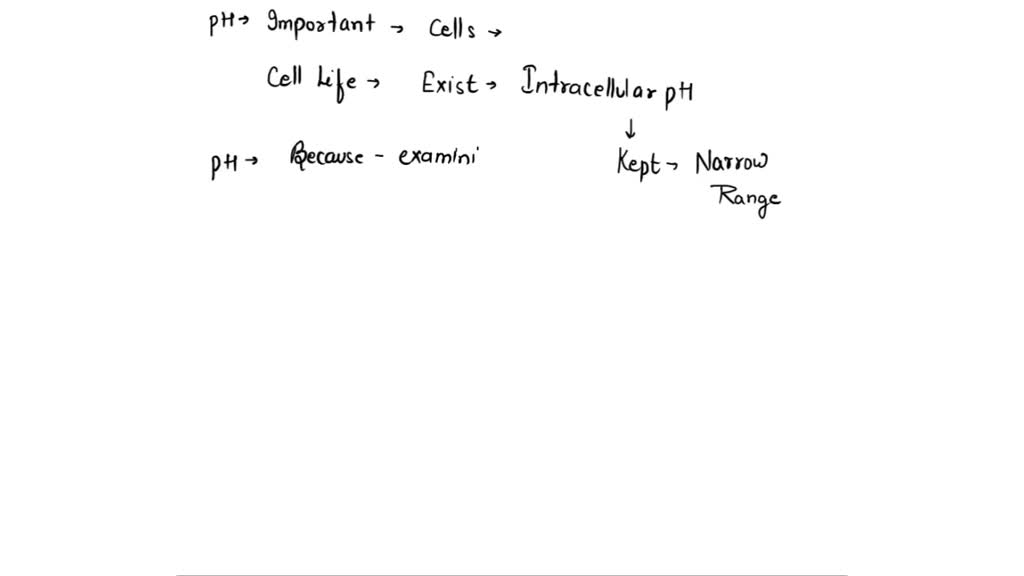 pH → Important → Cells →
Cell Life → Exist → Intracellular pH
↓
pH → Because - examini
Kept → Narrow
Range